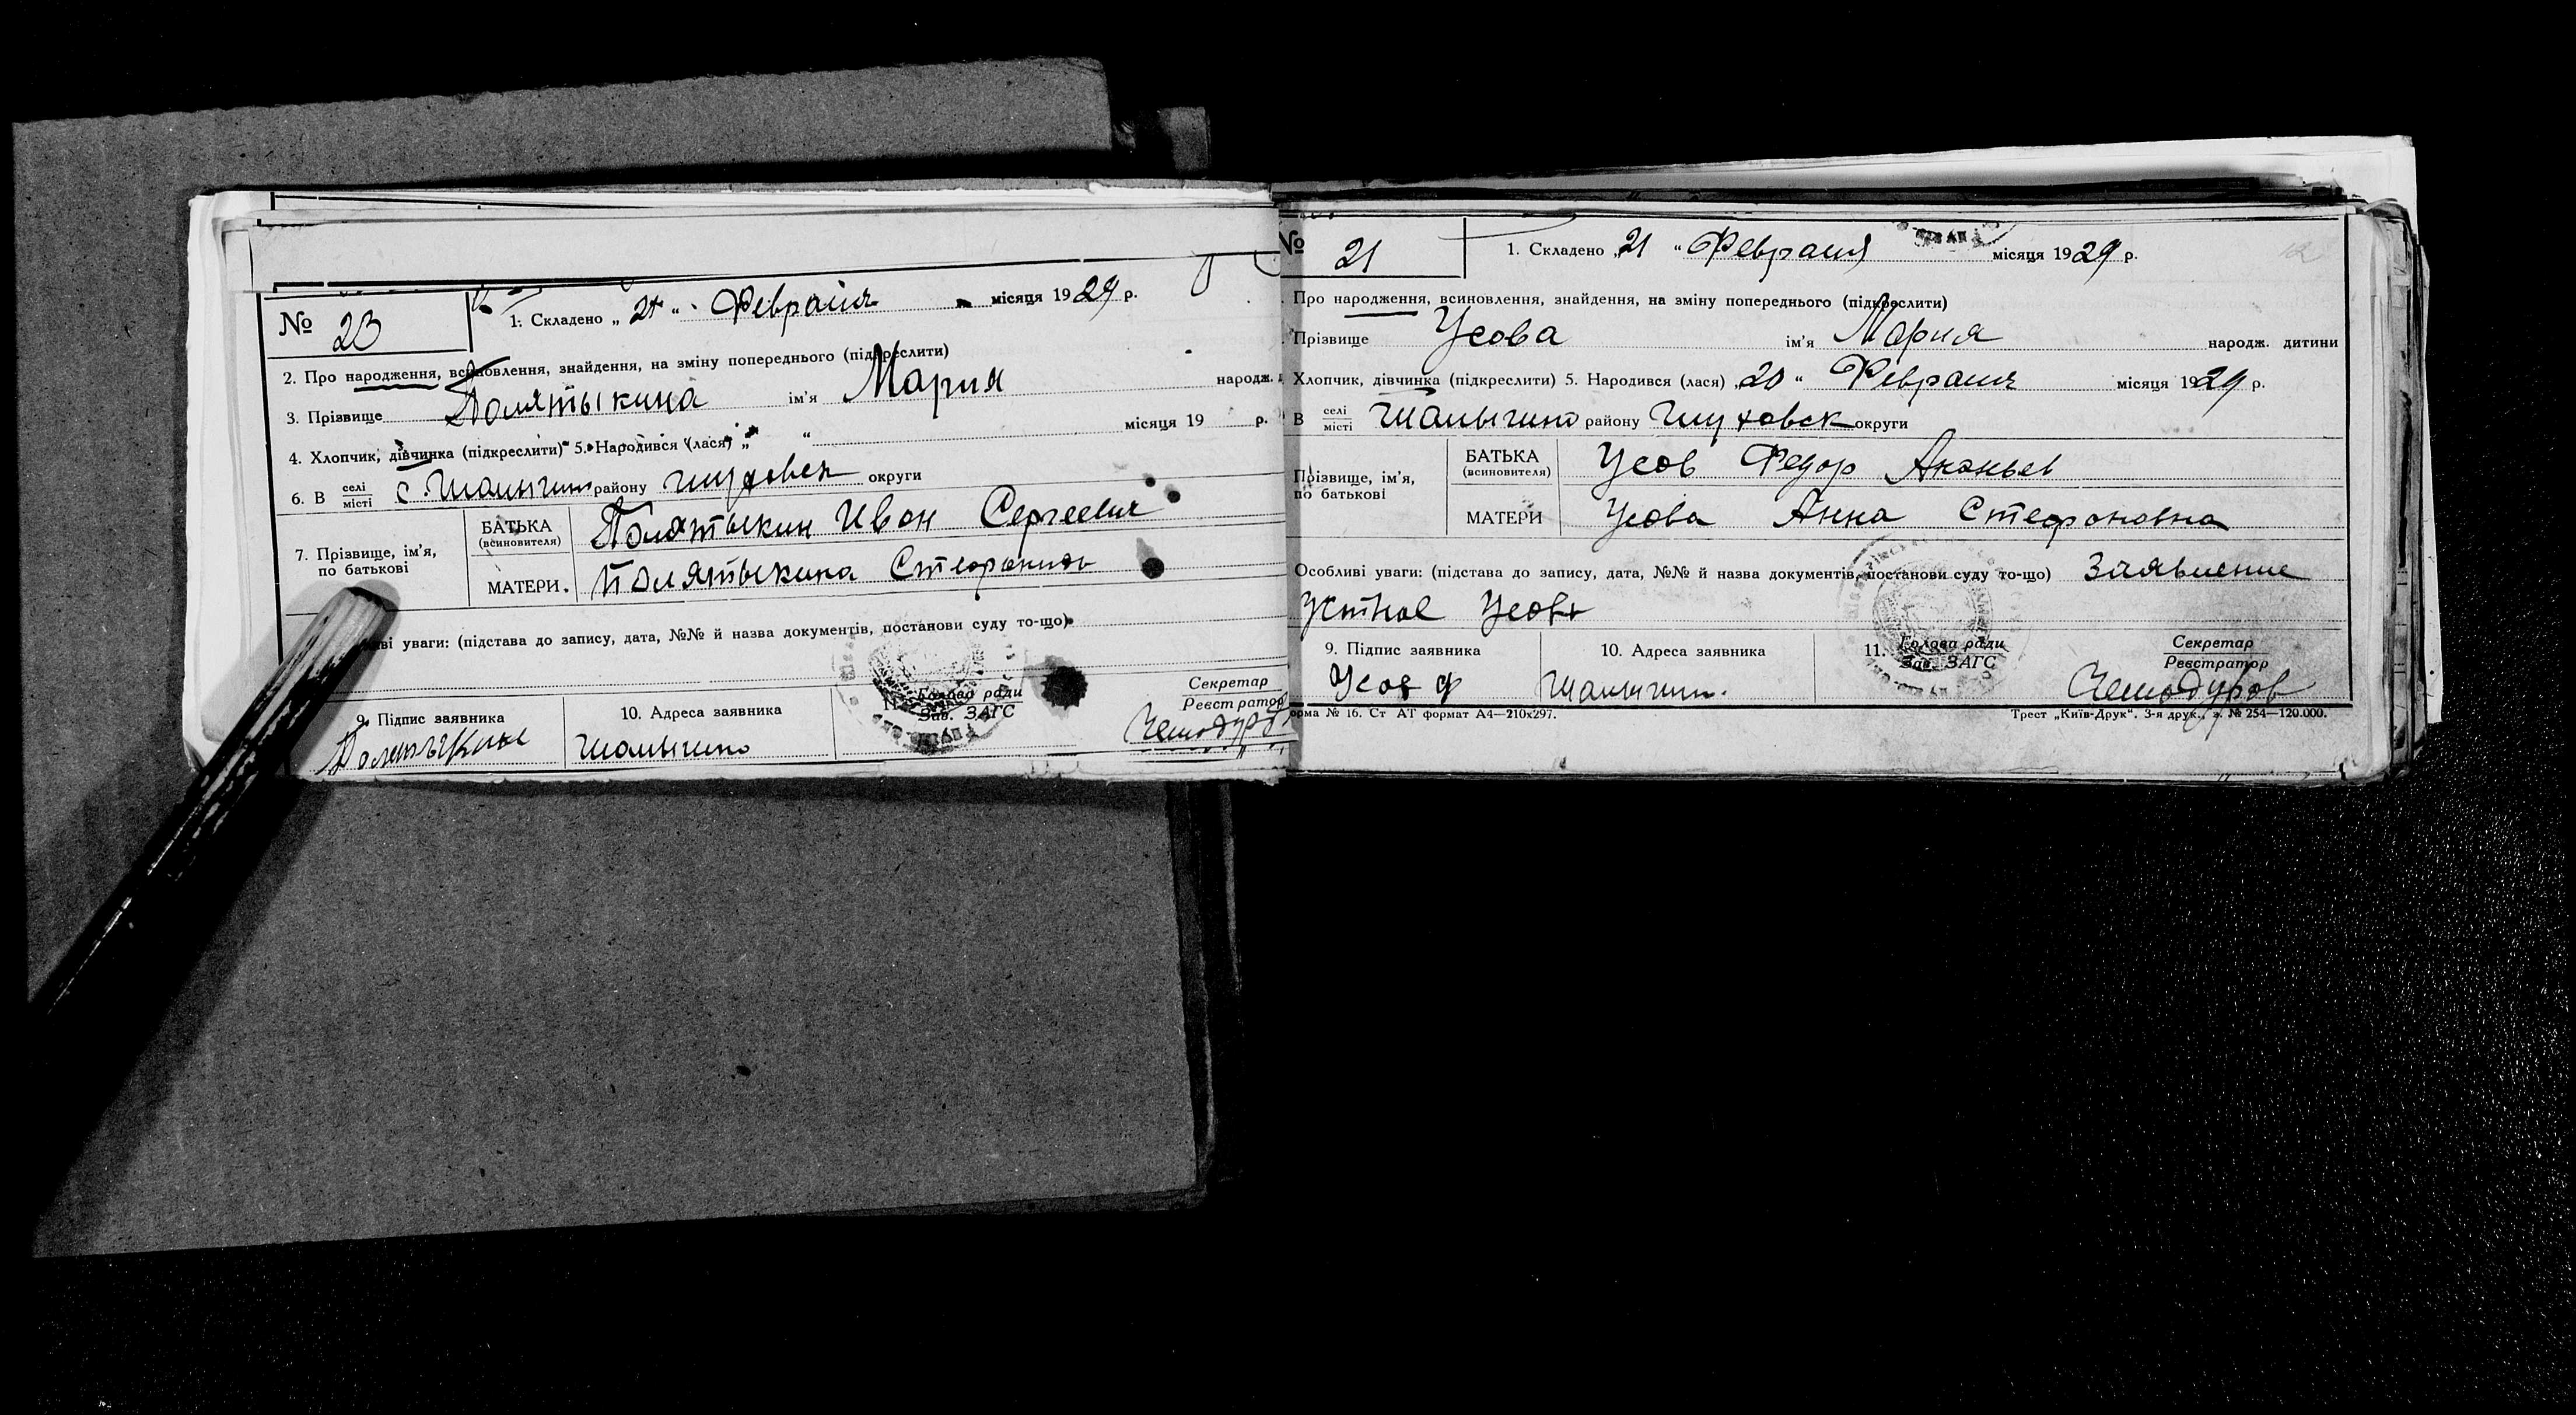 № 23
1. Складено „ 24 “ Февраля місяця 1929 р.
2. Про народження, всиновлення, знайдення, на зміну попереднього (підкреслити)
3. Прізвище Полятыкина ім'я Мария народж.
4. Хлопчик, дівчинка (підкреслити) 5. Народився (лася) „ “ місяця 19 р.
6. В селі місті с. Шалыгино району Глуховск округи
7. Прізвище, ім'я, по батькові
БАТЬКА (всиновителя) Полятыкин Иван Сергеевич
МАТЕРИ. Полятыкина Стефанида
уваги: (підстава до запису, дата, №№ й назва документів, постанови суду то-що)
9. Підпис заявника 10. Адреса заявника 11. Голова ради Зав. ЗАГС Секретар Реєстратор
Полятыкин Шалыгино Чемодуров
№ 21
1. Складено „ 21 “ Февраля місяця 1929 р.
Про народження, всиновлення, знайдення, на зміну попереднього (підкреслити)
Прізвище Усова ім'я Мария народж. дитини
Хлопчик, дівчинка (підкреслити) 5. Народився (лася) „ 20 “ Февраля місяця 1929 р.
В селі місті Шалыгино району Глуховск округи
Прізвище, ім'я, по батькові
БАТЬКА (всиновителя) Усов Федор Ананьев
МАТЕРИ Усова Анна Стефановна
Особливі уваги: (підстава до запису, дата, №№ й назва документів, постанови суду то-що) Заявление
устное Усова
9. Підпис заявника 10. Адреса заявника 11. Голова ради Зав. ЗАГС Секретар Реєстратор
Усов Ф Шалыгино. Чемодуров
орма № 16. Ст АТ формат А4—210x297. Трест „Київ-Друк“. 3-я друк., з. № 254—120.000.